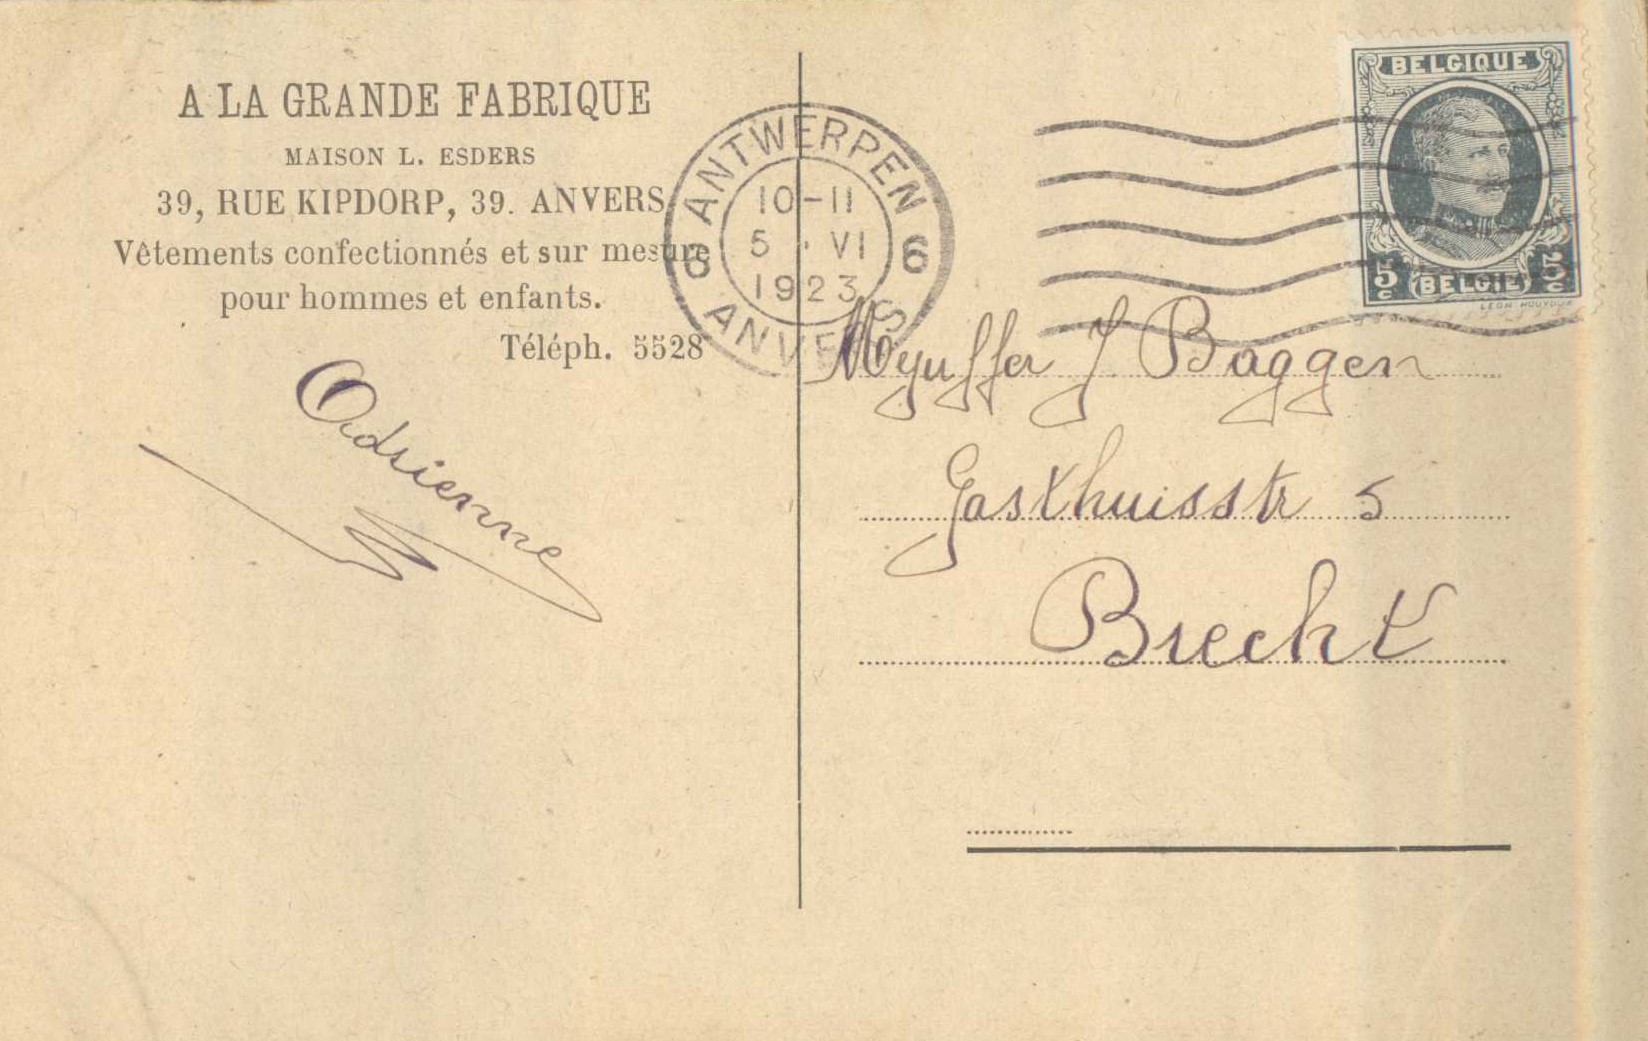 A LA GRANDE FABRIQUE
MAISON L. ESDERS
39, RUE KIPDORP, 39. ANVERS
Vêtements confectionnés et sur mesure
pour hommes et enfants.
Téléph. 5528
Adrienne
ANTWERPEN
6 6
10-11
5 · VI
1923
ANVERS
BELGIQUE
5c 5c
BELGIË
Mejuffer J Baggen
Gasthuisstr 5
Brecht